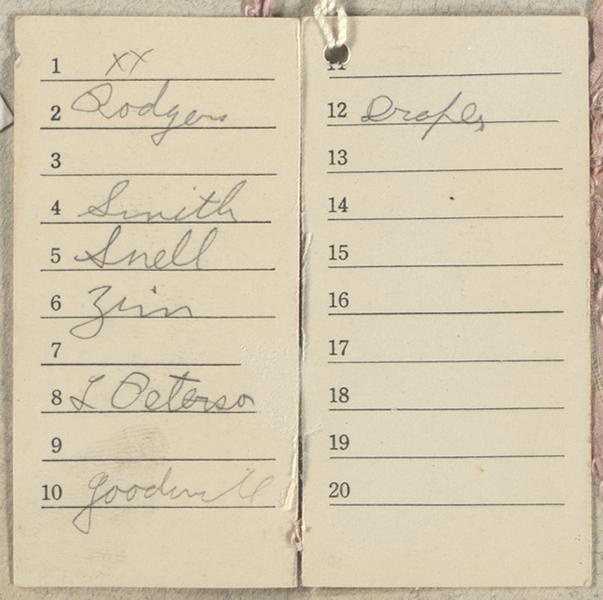 1 xx
2 Rodgers
3
4 Smith
5 Snell
6 Zinn
7
8 L Peterson
9
10 Goodwill
11
12 Draper
13
14
15
16
17
18
19
20